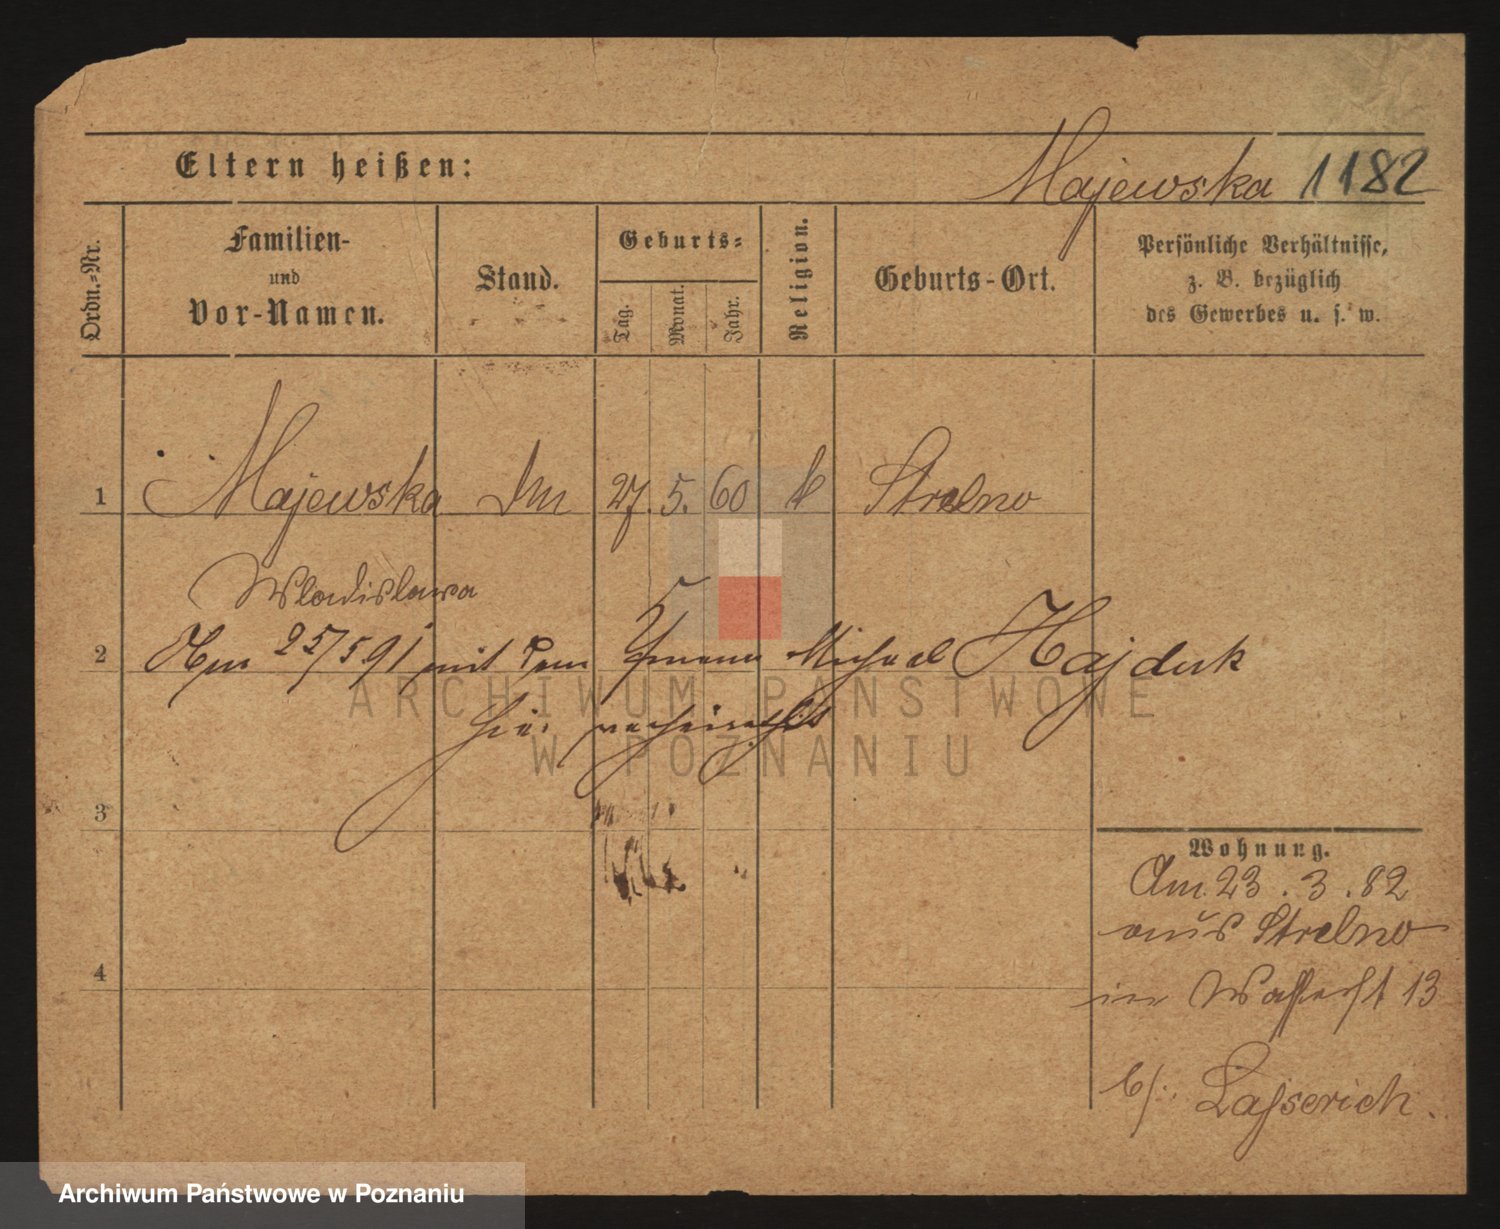 Eltern heißen:
Majewska 1182
Ordn.-Nr.
Familien-
und
Vor-Namen.
Stand.
Geburts-
Tag.
Monat.
Jahr.
Religion.
Geburts-Ort.
Persönliche Verhältnisse,
z. B. bezüglich
des Gewerbes u. s. w.
1 Majewska 27. 5. 60 k Strelno
Wladislawa
2 Am 25/5 91 mit dem Michael Hajduk
hier verheirathet
3
4
Wohnung.
Am 23. 3. 82
aus Strelno
in 13
b/.
ARCHIWUM PAŃSTWOWE
W POZNANIU
Archiwum Państwowe w Poznaniu